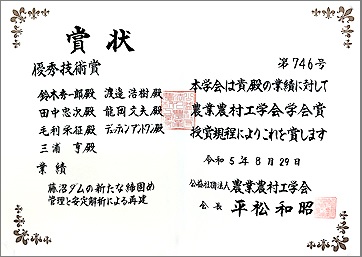 賞状
第746号
優秀技術賞
鈴木秀一郎殿 渡邉浩樹殿
田中忠次殿 龍岡文夫殿
毛利栄征殿 デュッティンアントワン殿
三浦亨殿
業績
藤沼ダムの新たな締固め
管理と安定解析による再建
本学会は貴殿の業績に対して
農業農村工学会学会賞
授賞規程によりこれを賞します
令和5年8月29日
公益社団法人農業農村工学会
会長 平松和昭